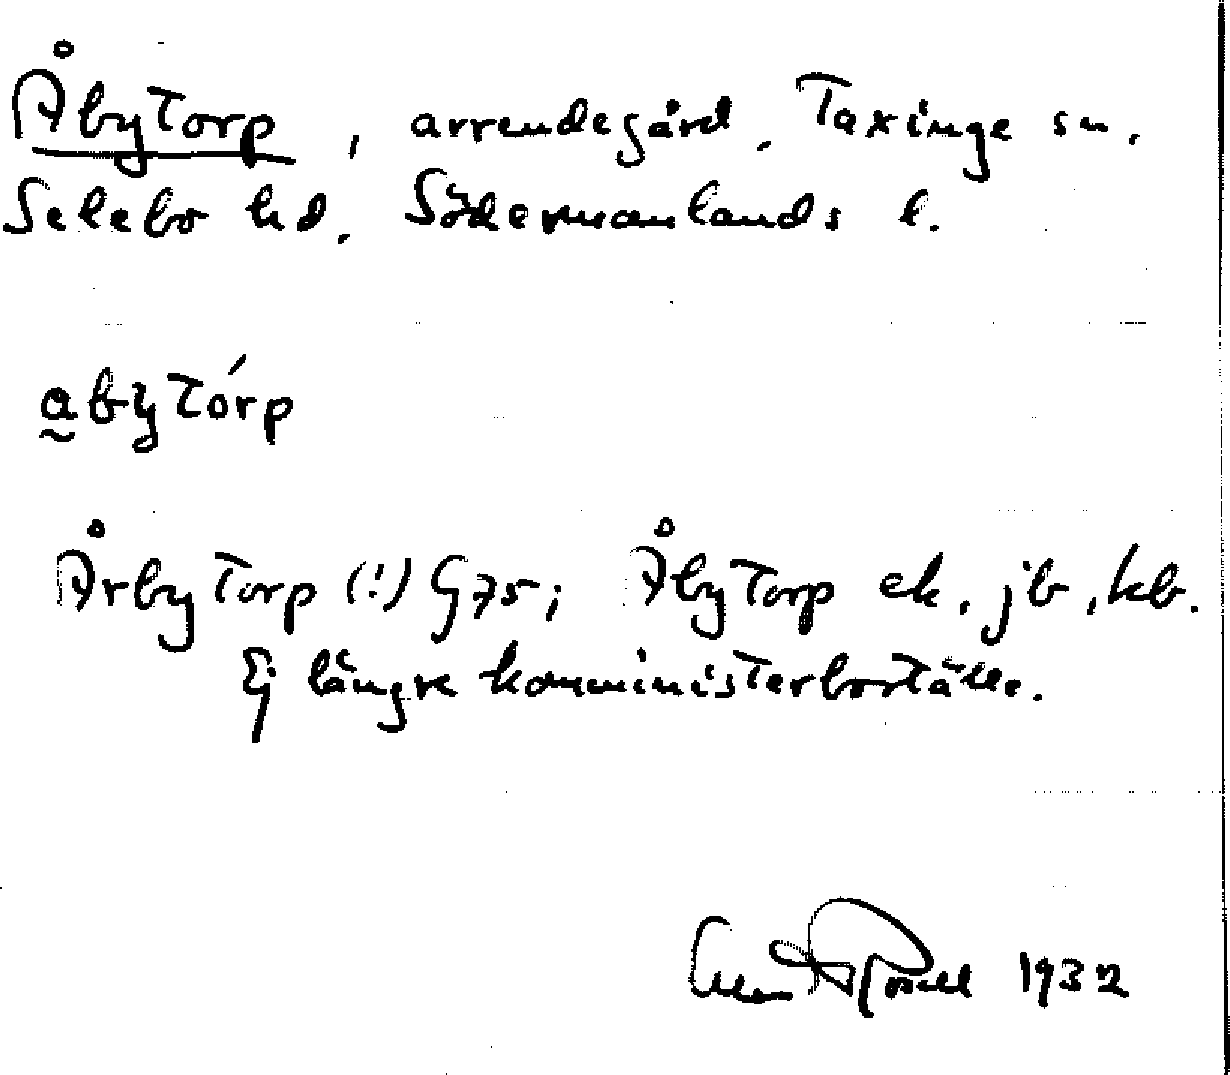 Åbytorp, arrendegård, Taxinge sn.
Selebo hd. Södermanlands l.
a̰bytórp
Årbytorp (!) G 75; Åbytorp ek, jb, kb.
Ej längre komministerboställe.
1932